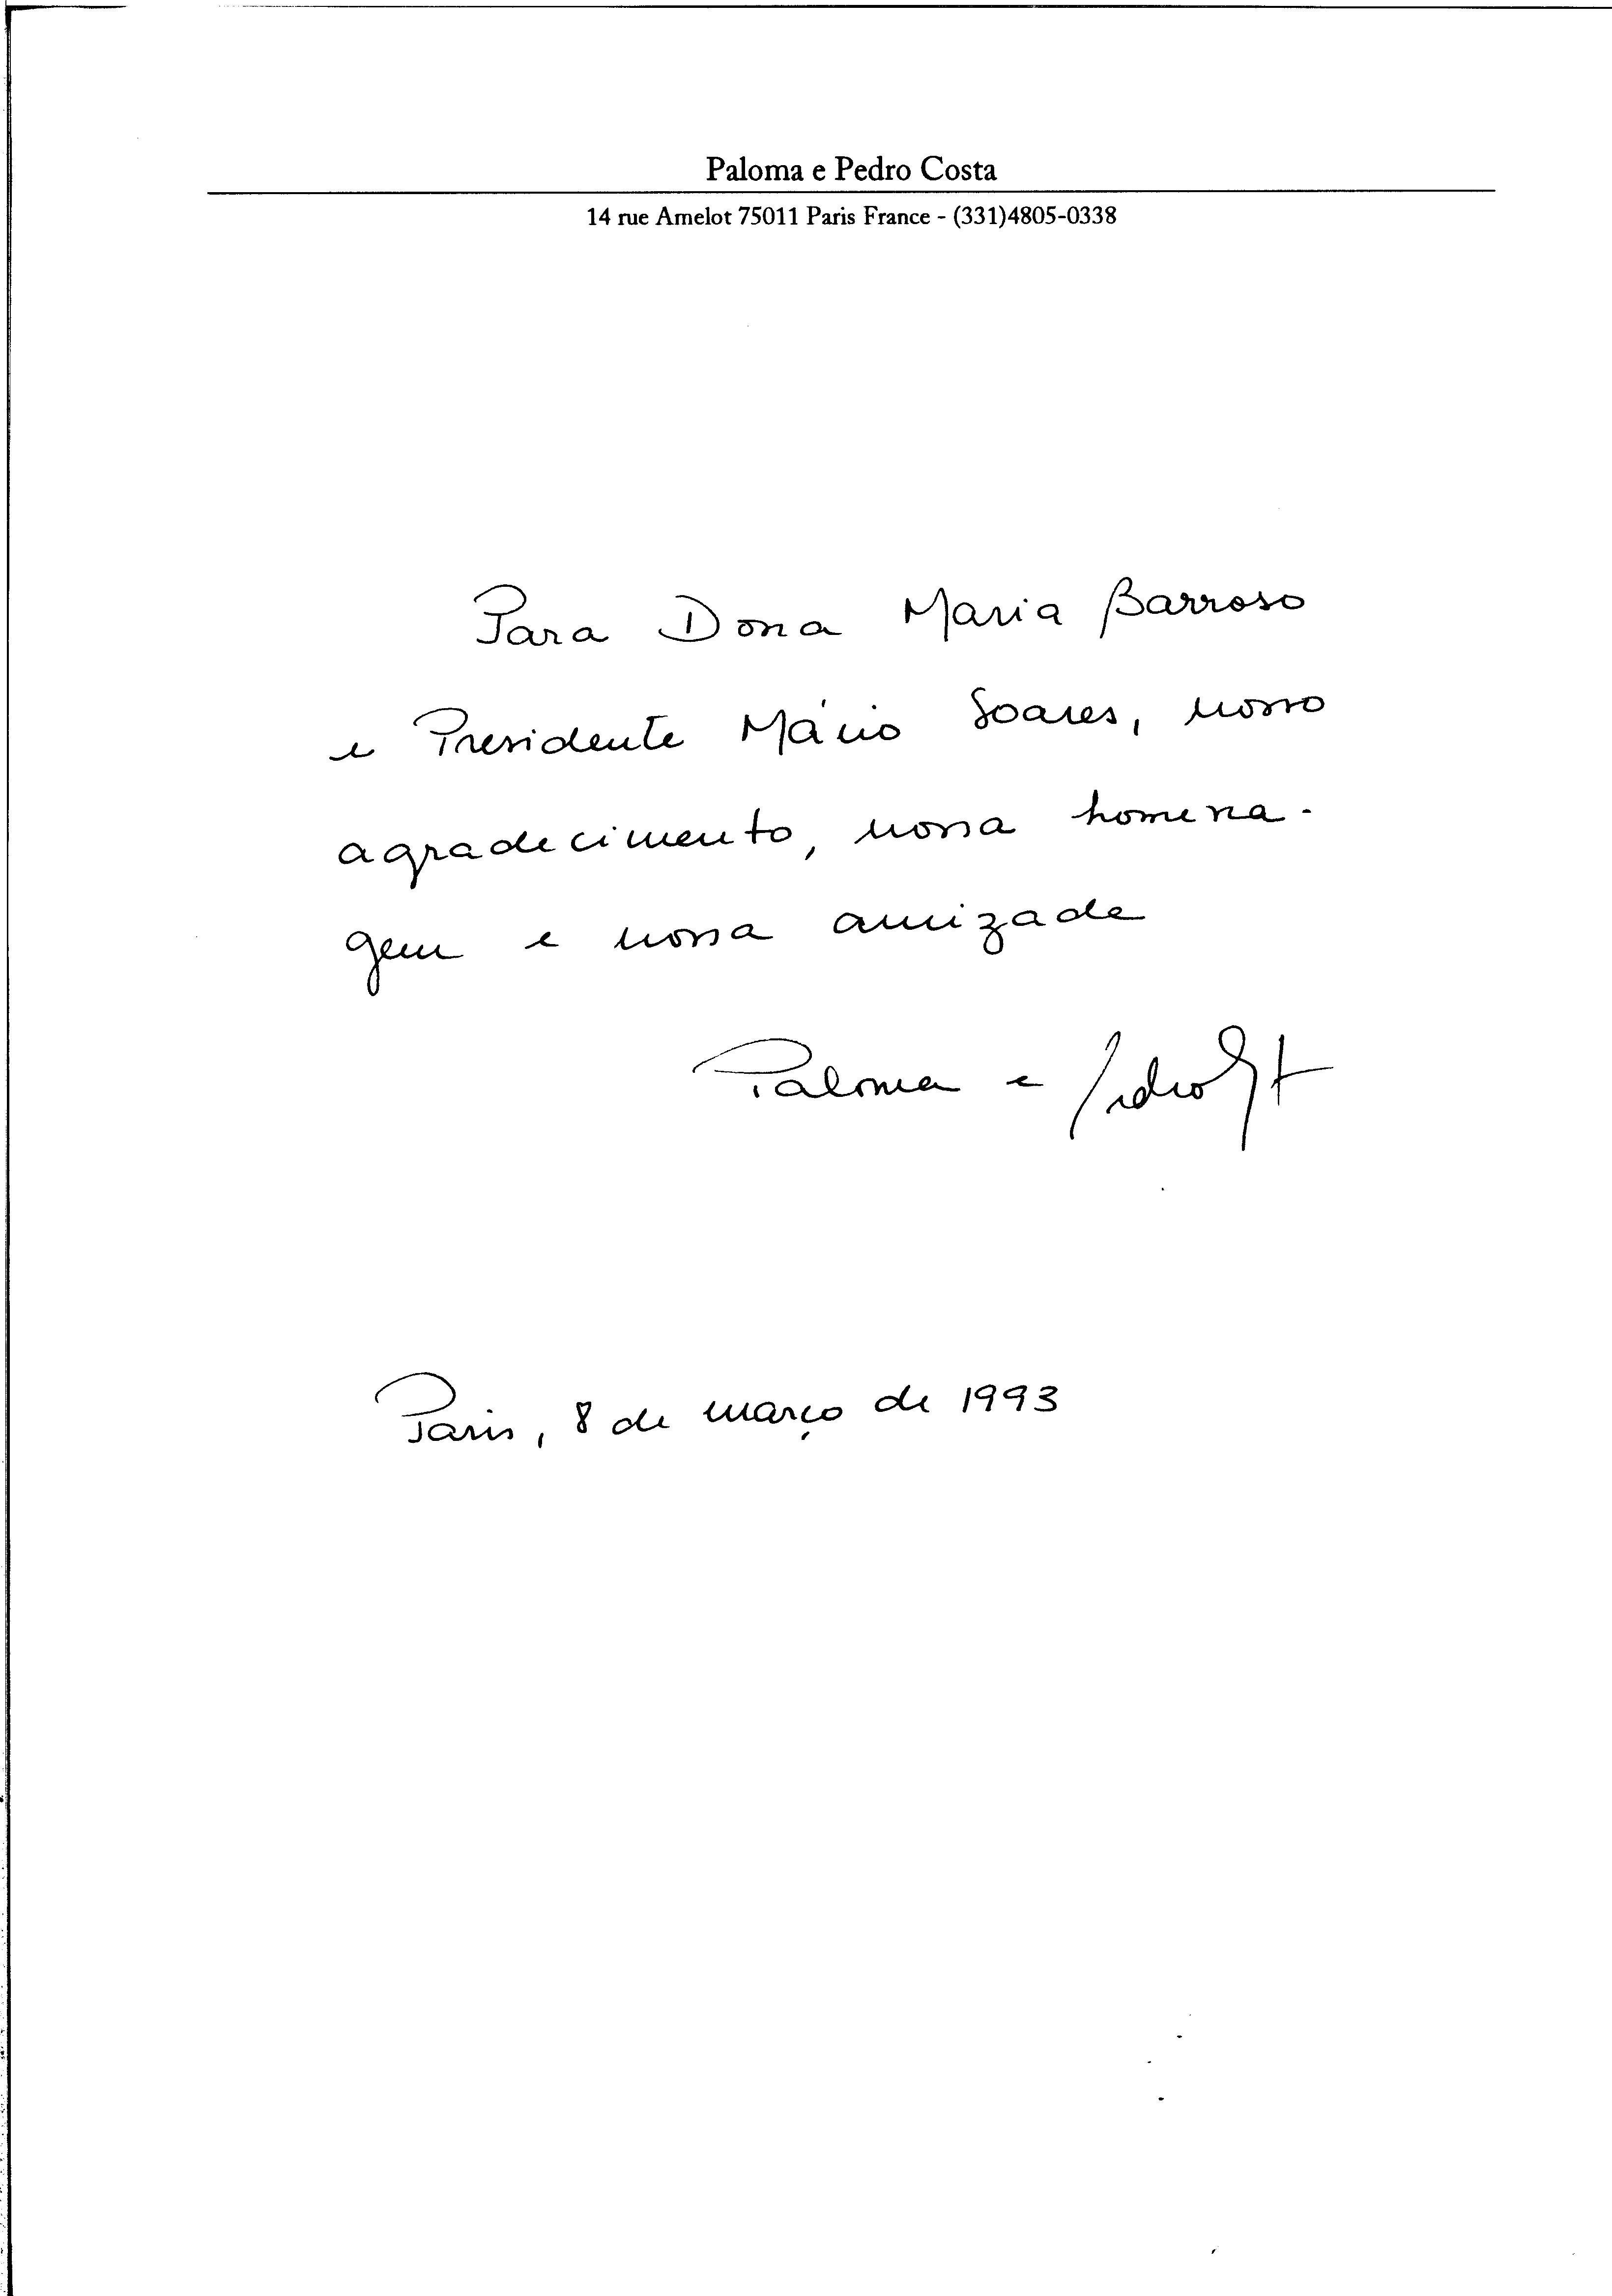 Paloma e Pedro Costa
14 rue Amelot 75011 Paris France - (331)4805-0338
Para Dona Maria Barroso
e Presidente Mário Soares, nosso
agradecimento, nossa homena-
gem e nossa amizade
Paloma e Pedro
Paris, 8 de março de 1993